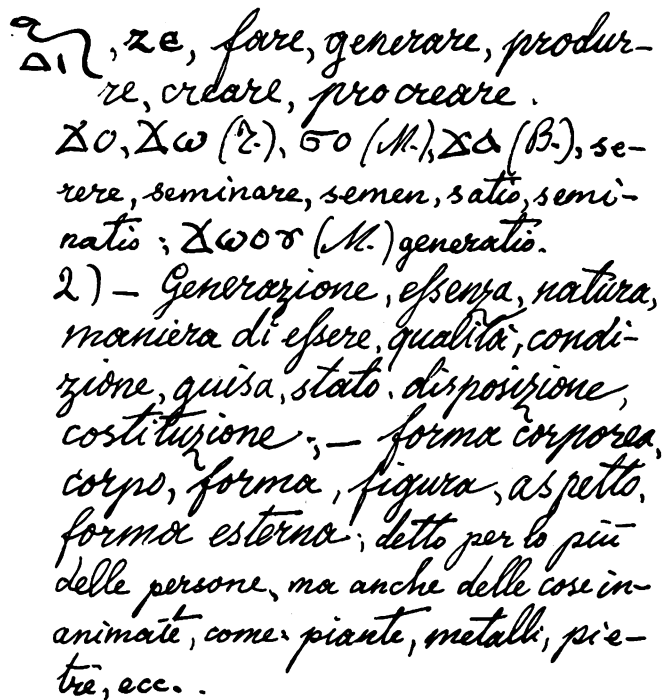 , ze, fare, generare, produr-
re, creare, procreare.
ϫο, ϫω (T.), ϭο (M.), ϫⲁ (B.), se-
rere, seminare, semen, satio, semi-
natio; ϫωοⲩ (M.) generatio.
2) — Generazione, essenza, natura,
maniera di essere, qualità, condi-
zione, guisa, stato. disposizione,
costituzione; — forma corporea,
corpo, forma, figura, aspetto,
forma esterna; detto per lo più
delle persone, ma anche delle cose in-
animate, come: piante, metalli, pie-
tre, ecc..